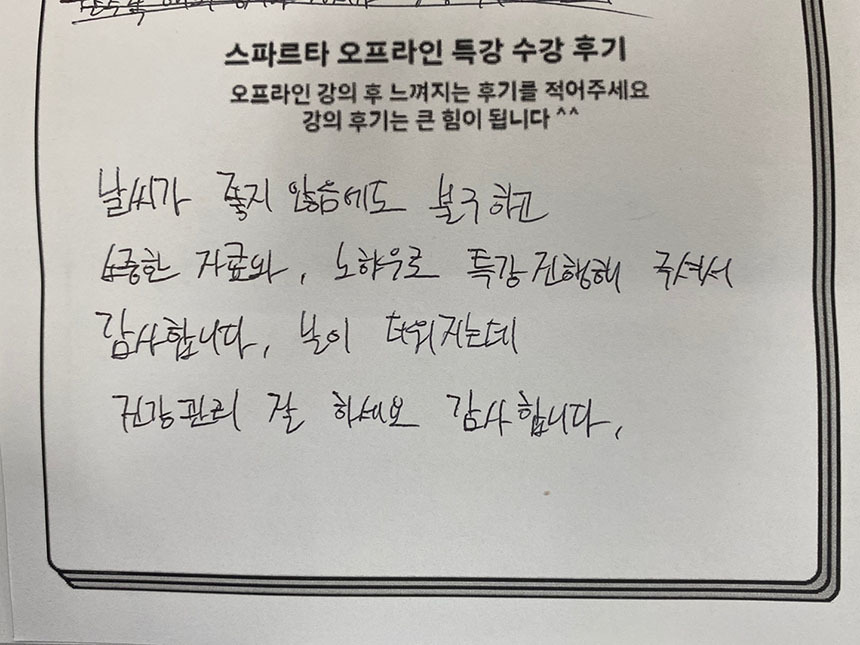 스파르타 오프라인 특강 수강 후기
오프라인 강의 후 느껴지는 후기를 적어주세요
강의 후기는 큰 힘이 됩니다 ^^
날씨가 좋지 않음에도 불구하고
소중한 자료와, 노하우로 특강 진행해 주셔서
감사합니다. 날이 더워지는데
건강관리 잘 하세요 감사합니다.